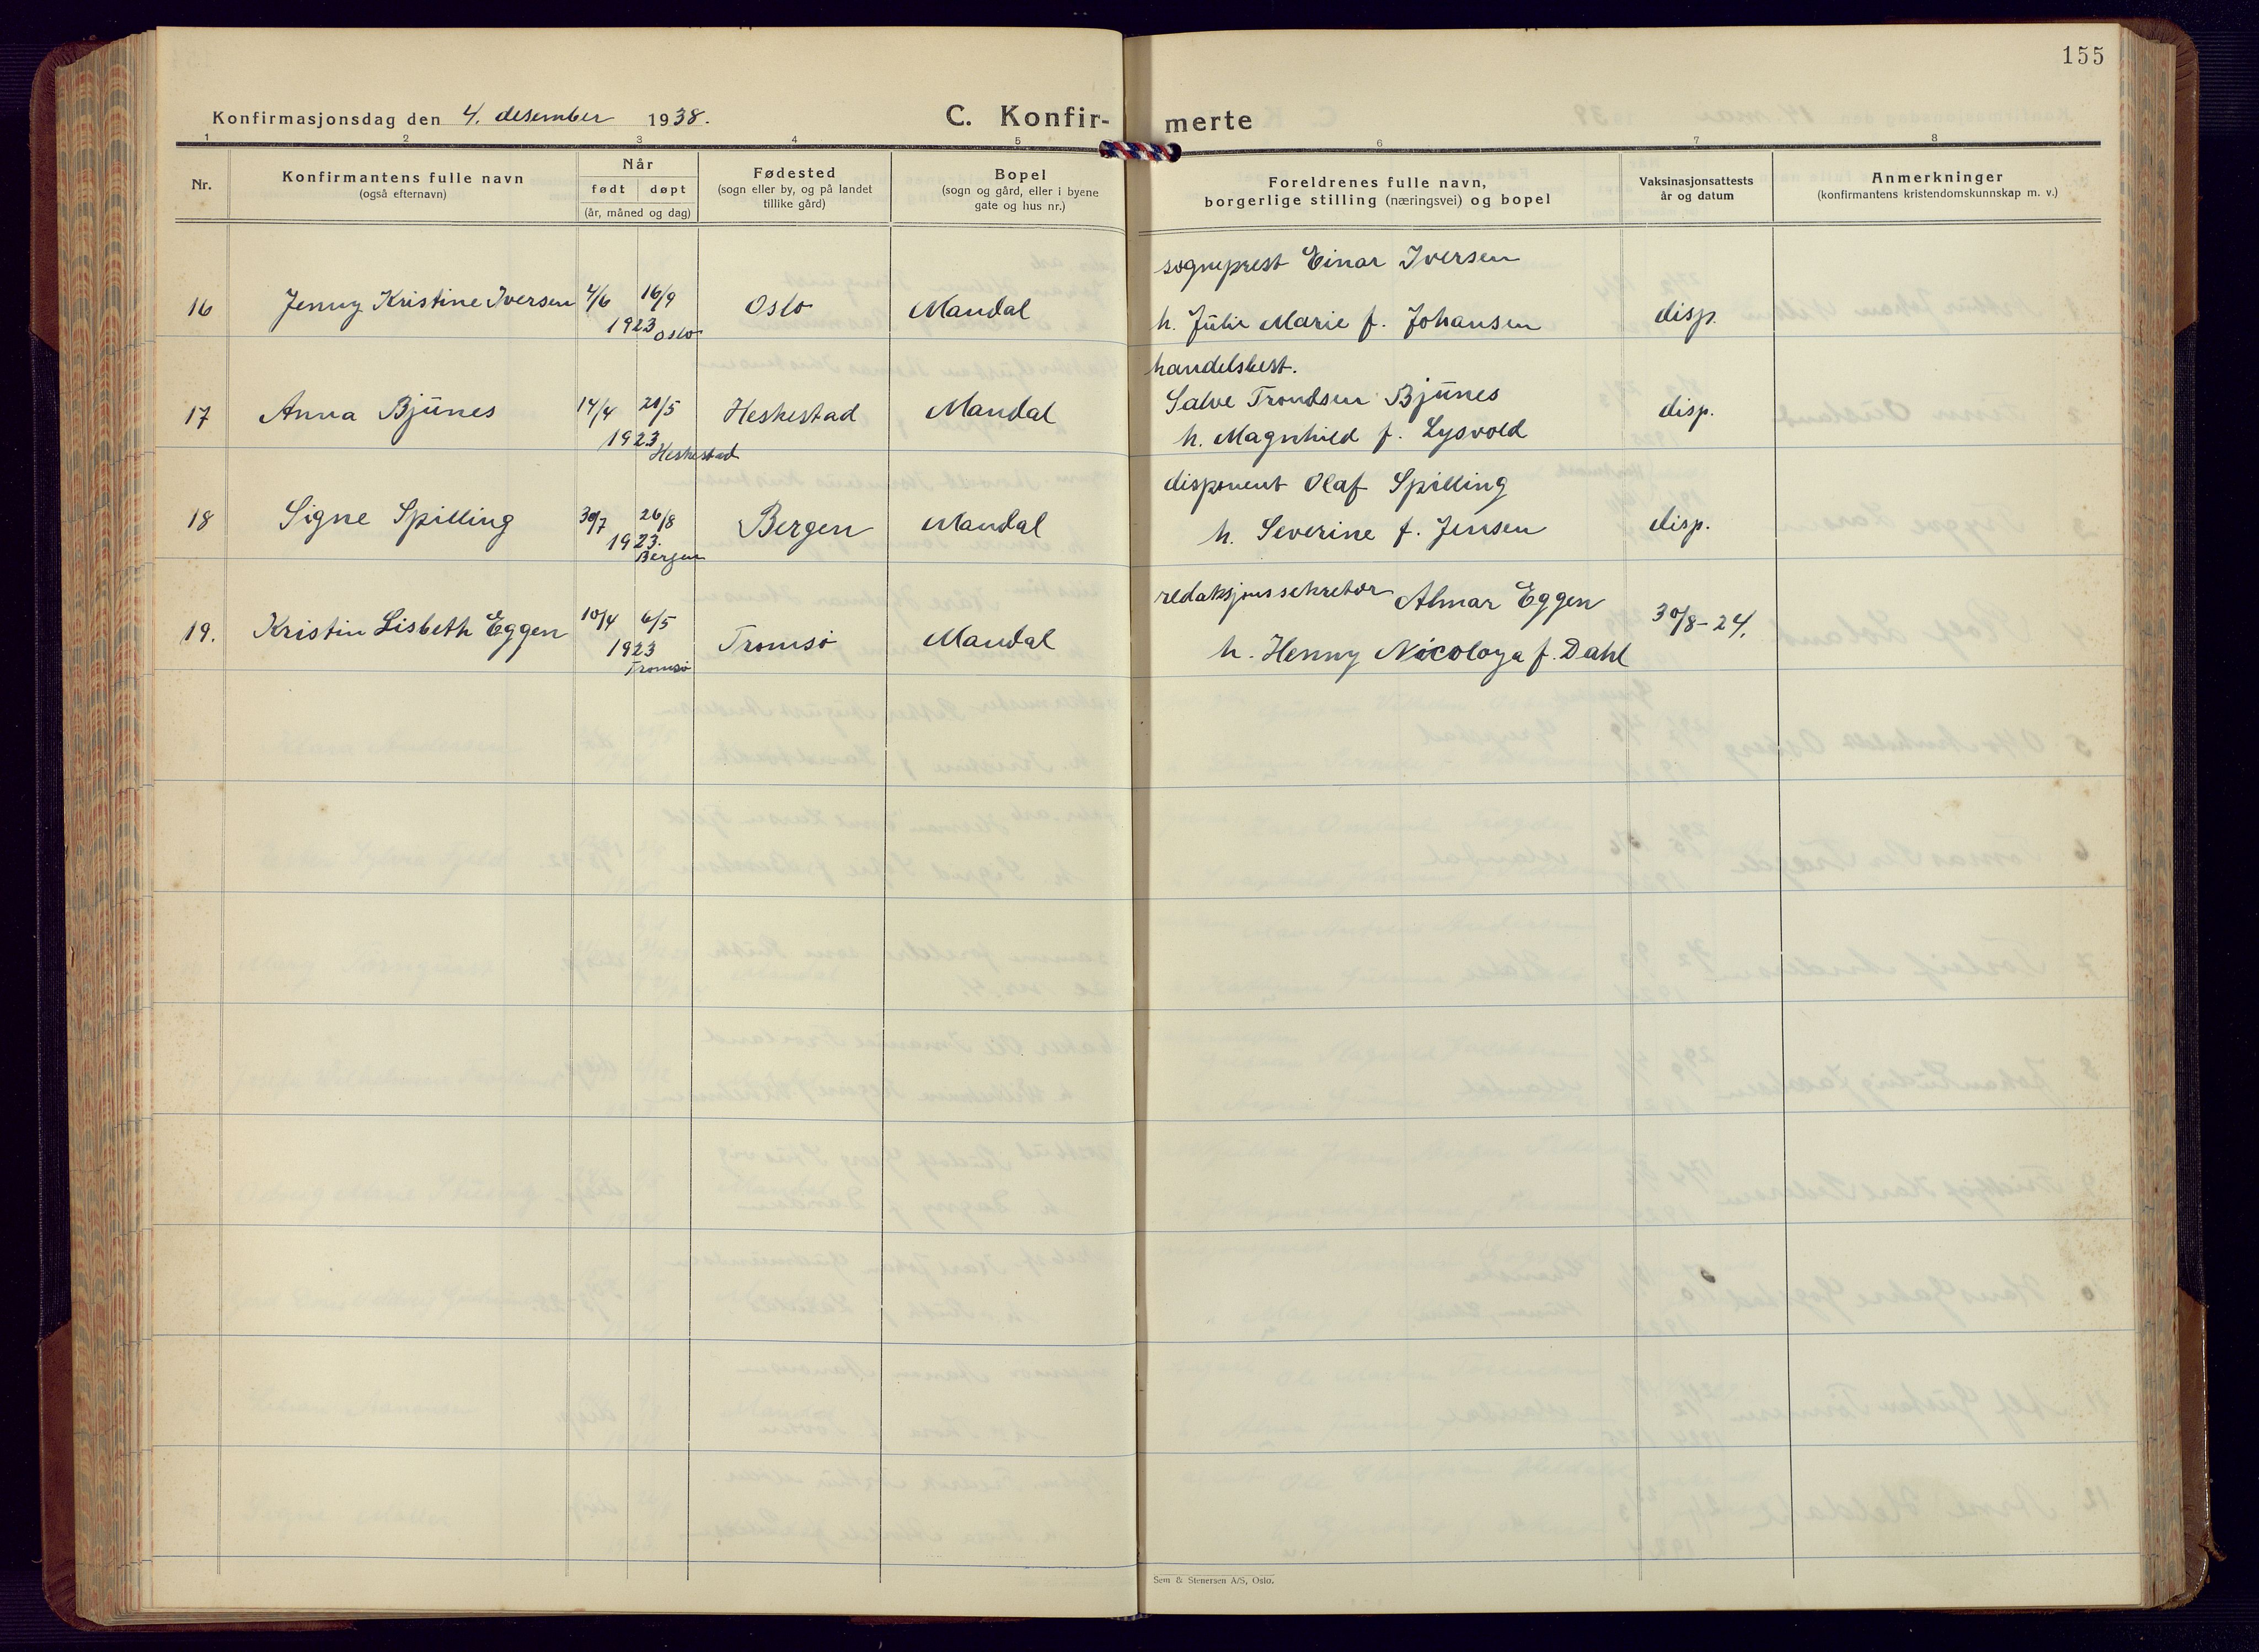 155
Konfirmasjonsdag den 4. desember 1938.
C. Konfir- merte
1 2 3 4 5 6 7 8
Nr.
Konfirmantens fulle navn
(også efternavn)
Når
født døpt
(år, måned og dag)
Fødested
(sogn eller by, og på landet
tillike gård)
Bopel
(sogn og gård, eller i byene
gate og hus nr.)
Foreldrenes fulle navn,
borgerlige stilling (næringsvei) og bopel
Vaksinasjonsattests
år og datum
Anmerkninger
(konfirmantens kristendomskunnskap m. v.)
sogneprest Einar Iversen
16 Jenny Kristine Iversen 4/6 16/9 Oslo Mandal h. Julie Marie f. Johansen disp.
1923 Oslo
handelsbest.
17 Anna Bjūnes 14/4 21/5 Heskestad Mandal Salve Trondsen Bjūnes disp.
1923 h. Magnhild f. Lysvold
Heskestad
disponent Olaf Spilling
18 Signe Spilling 30/7 26/8 Bergen Mandal h. Severine f. Jensen disp.
1923.
Bergen
redaksjonssekretær Almar Eggen
19. Kristin Lisbeth Eggen 10/4 6/5 Tromsø Mandal h. Henny Nicoloya f. Dahl 30/8-24.
1923
Tromsø
Sem & Stenersen A/S, Oslo.